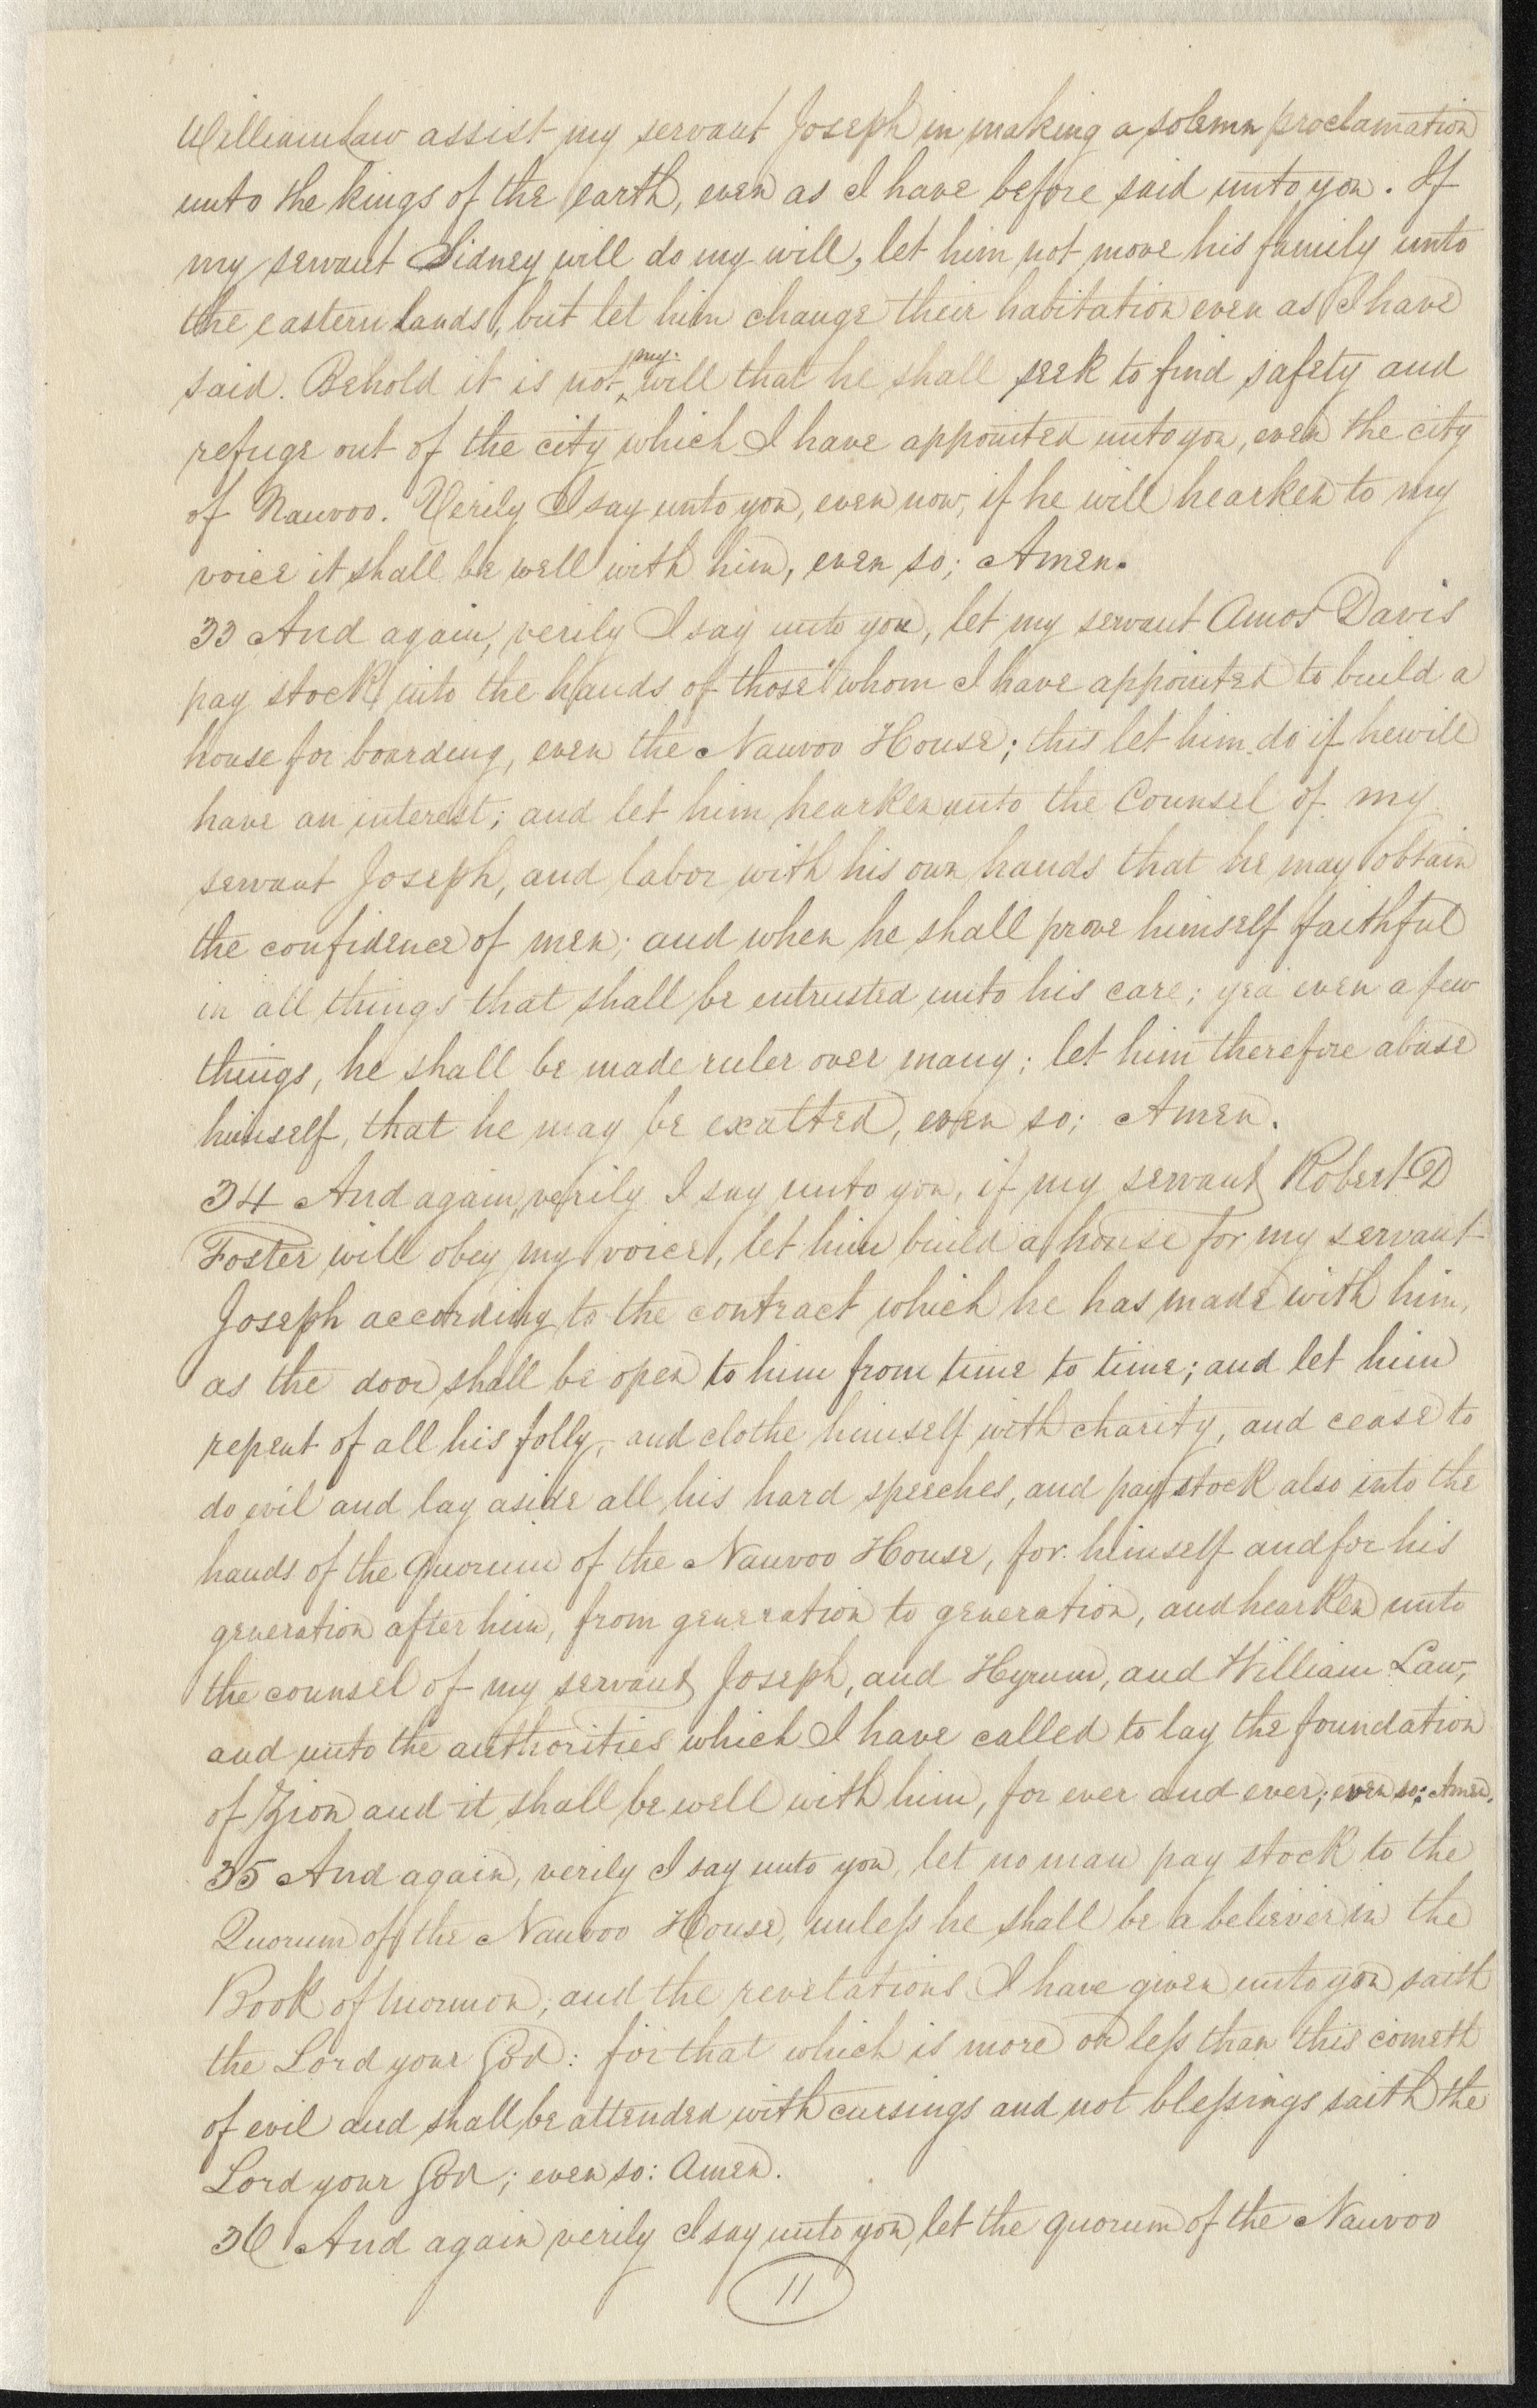 William Law assist my servant Joseph in making a solemn proclamation
unto the kings of the earth, even as I have before said unto you. If
my servant Sidney will do my will, let him not move his family unto
the eastern lands, but let him change their habitation even as I have
my.
said. Behold it is not ‸ will that he shall seek to find safety and
refuge out of the city which I have appointed unto you, even the city
of Nauvoo. Verily I say unto you, even now, if he will hearken to my
voice it shall be well with him, even so; Amen.
33 And again, verily I say unto you, let my servant Amos Davis
pay stock into the hands of those whom I have appointed to build a
house for boarding, even the Nauvoo House; this let him do if he will
have an interest; and let him hearken unto the Counsel of my
servant Joseph, and labor with his own hands that he may obtain
the confidence of men; and when he shall prove himself faithful
in all things that shall be entrusted unto his care; yea even a few
things, he shall be made ruler over many; let him therefore abase
himself, that he may be exalted, even so; Amen.
34 And again, verily I say unto you, if my servant Robert D
Foster will obey my voice, let him build a house for my servant
Joseph according to the contract which he has made with him,
as the door shall be open to him from time to time; and let him
repent of all his folly, and clothe himself with charity, and cease to
do evil and lay aside all his hard speeches, and pay stock also into the
hands of the Quorum of the Nauvoo House, for himself and for his
generation after him, from generation to generation, and hearken unto
the counsel of my servant Joseph, and Hyrum, and William Law,
and unto the authorities which I have called to lay the foundation
of Zion and it shall be well with him, for ever and ever; even so; Amen.
35 And again, verily I say unto you, let no man pay stock to the
Quorum of the Nauvoo House, unless he shall be a believer in the
Book of Mormon, and the revelations I have given unto you saith
the Lord your God: for that which is more or less than this cometh
of evil and shall be attended with cursings and not blessings saith the
Lord your God; even so: Amen.
36 And again verily I say unto you, let the quorum of the Nauvoo
11